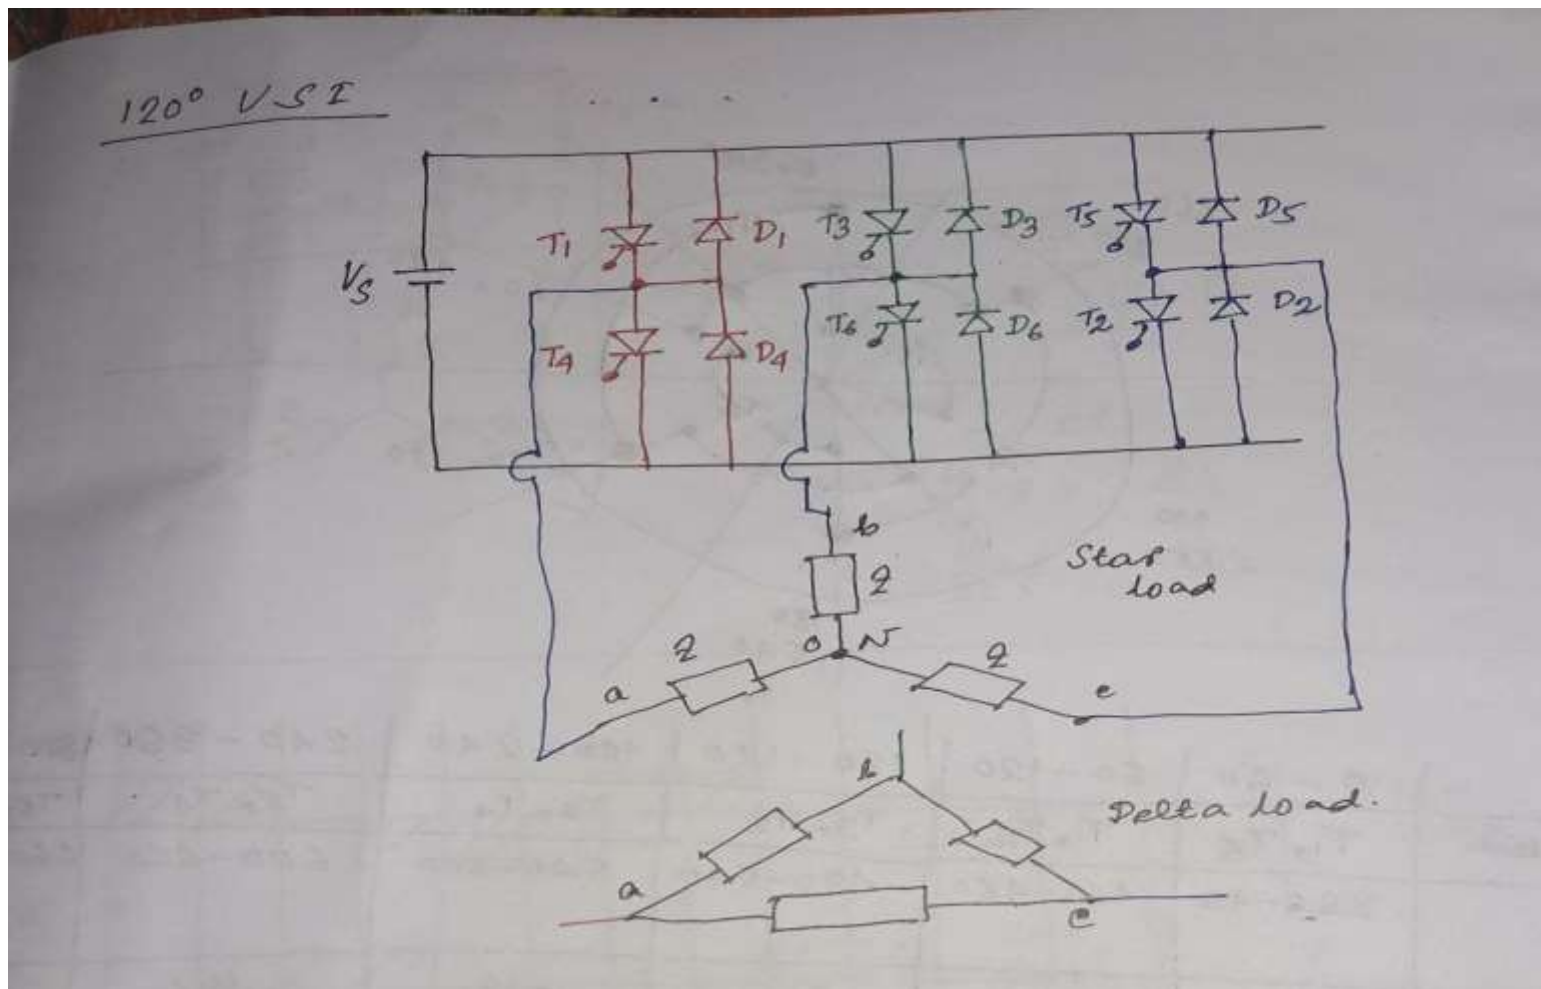 120° VSI
Vs
T1 D1 T3 D3 T5 D5
T4 D4 T6 D6 T2 D2
b
Star
load
Z
o N
Z Z
a c
b
Delta load.
a
c